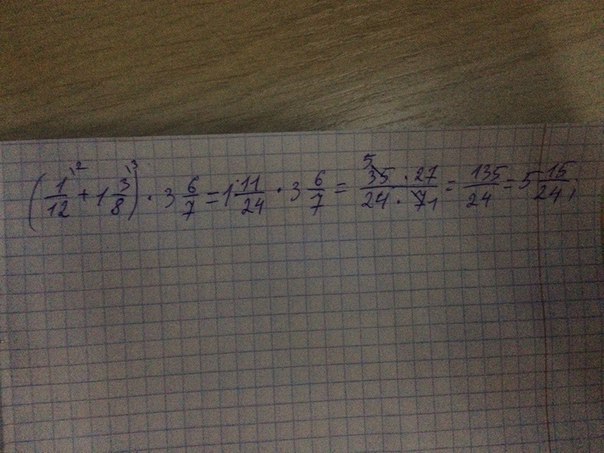 (1/12 \2 + 1 3/8 \3) · 3 6/7 = 1 11/24 · 3 6/7 = 5 35 · 27 / 24 · 7 1 = 135/24 = 5 15/24;